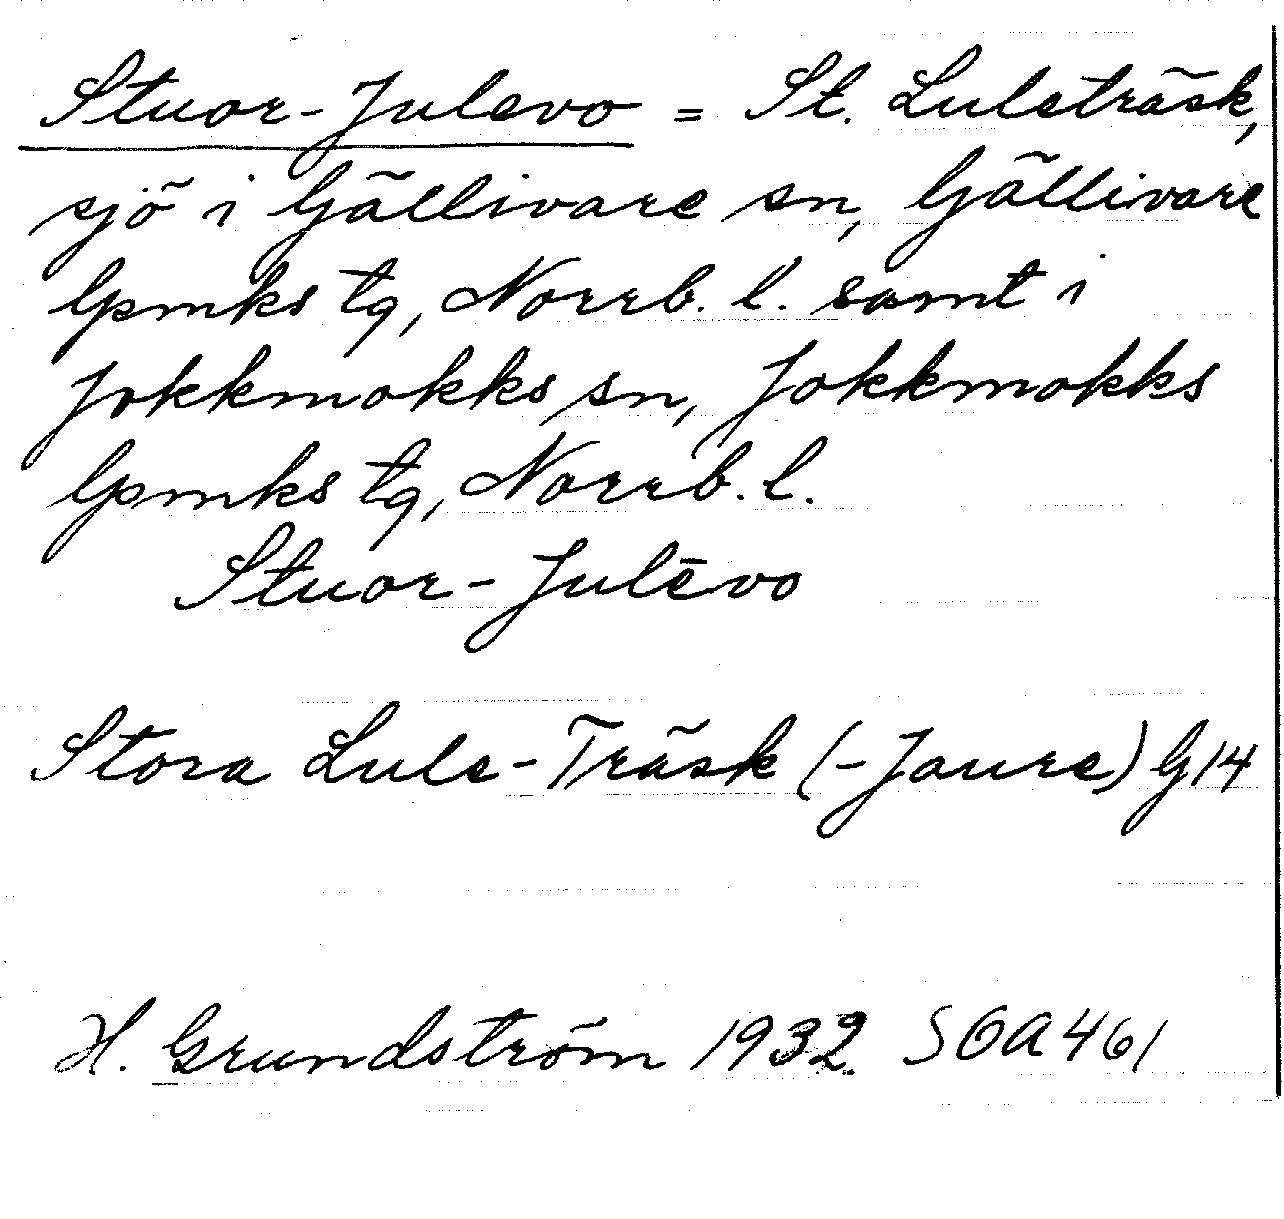 Stuor-Julevo = St. Luleträsk,
sjö i Gällivare sn, Gällivare
lpmks tg, Norrb. l. samt i
Jokkmokks sn, Jokkmokks
lpmks tg, Norrb. l.
Stuor-Julēvo
Stora Lule-Träsk (-Jaure) G14
H. Grundström 1932. SOA 461